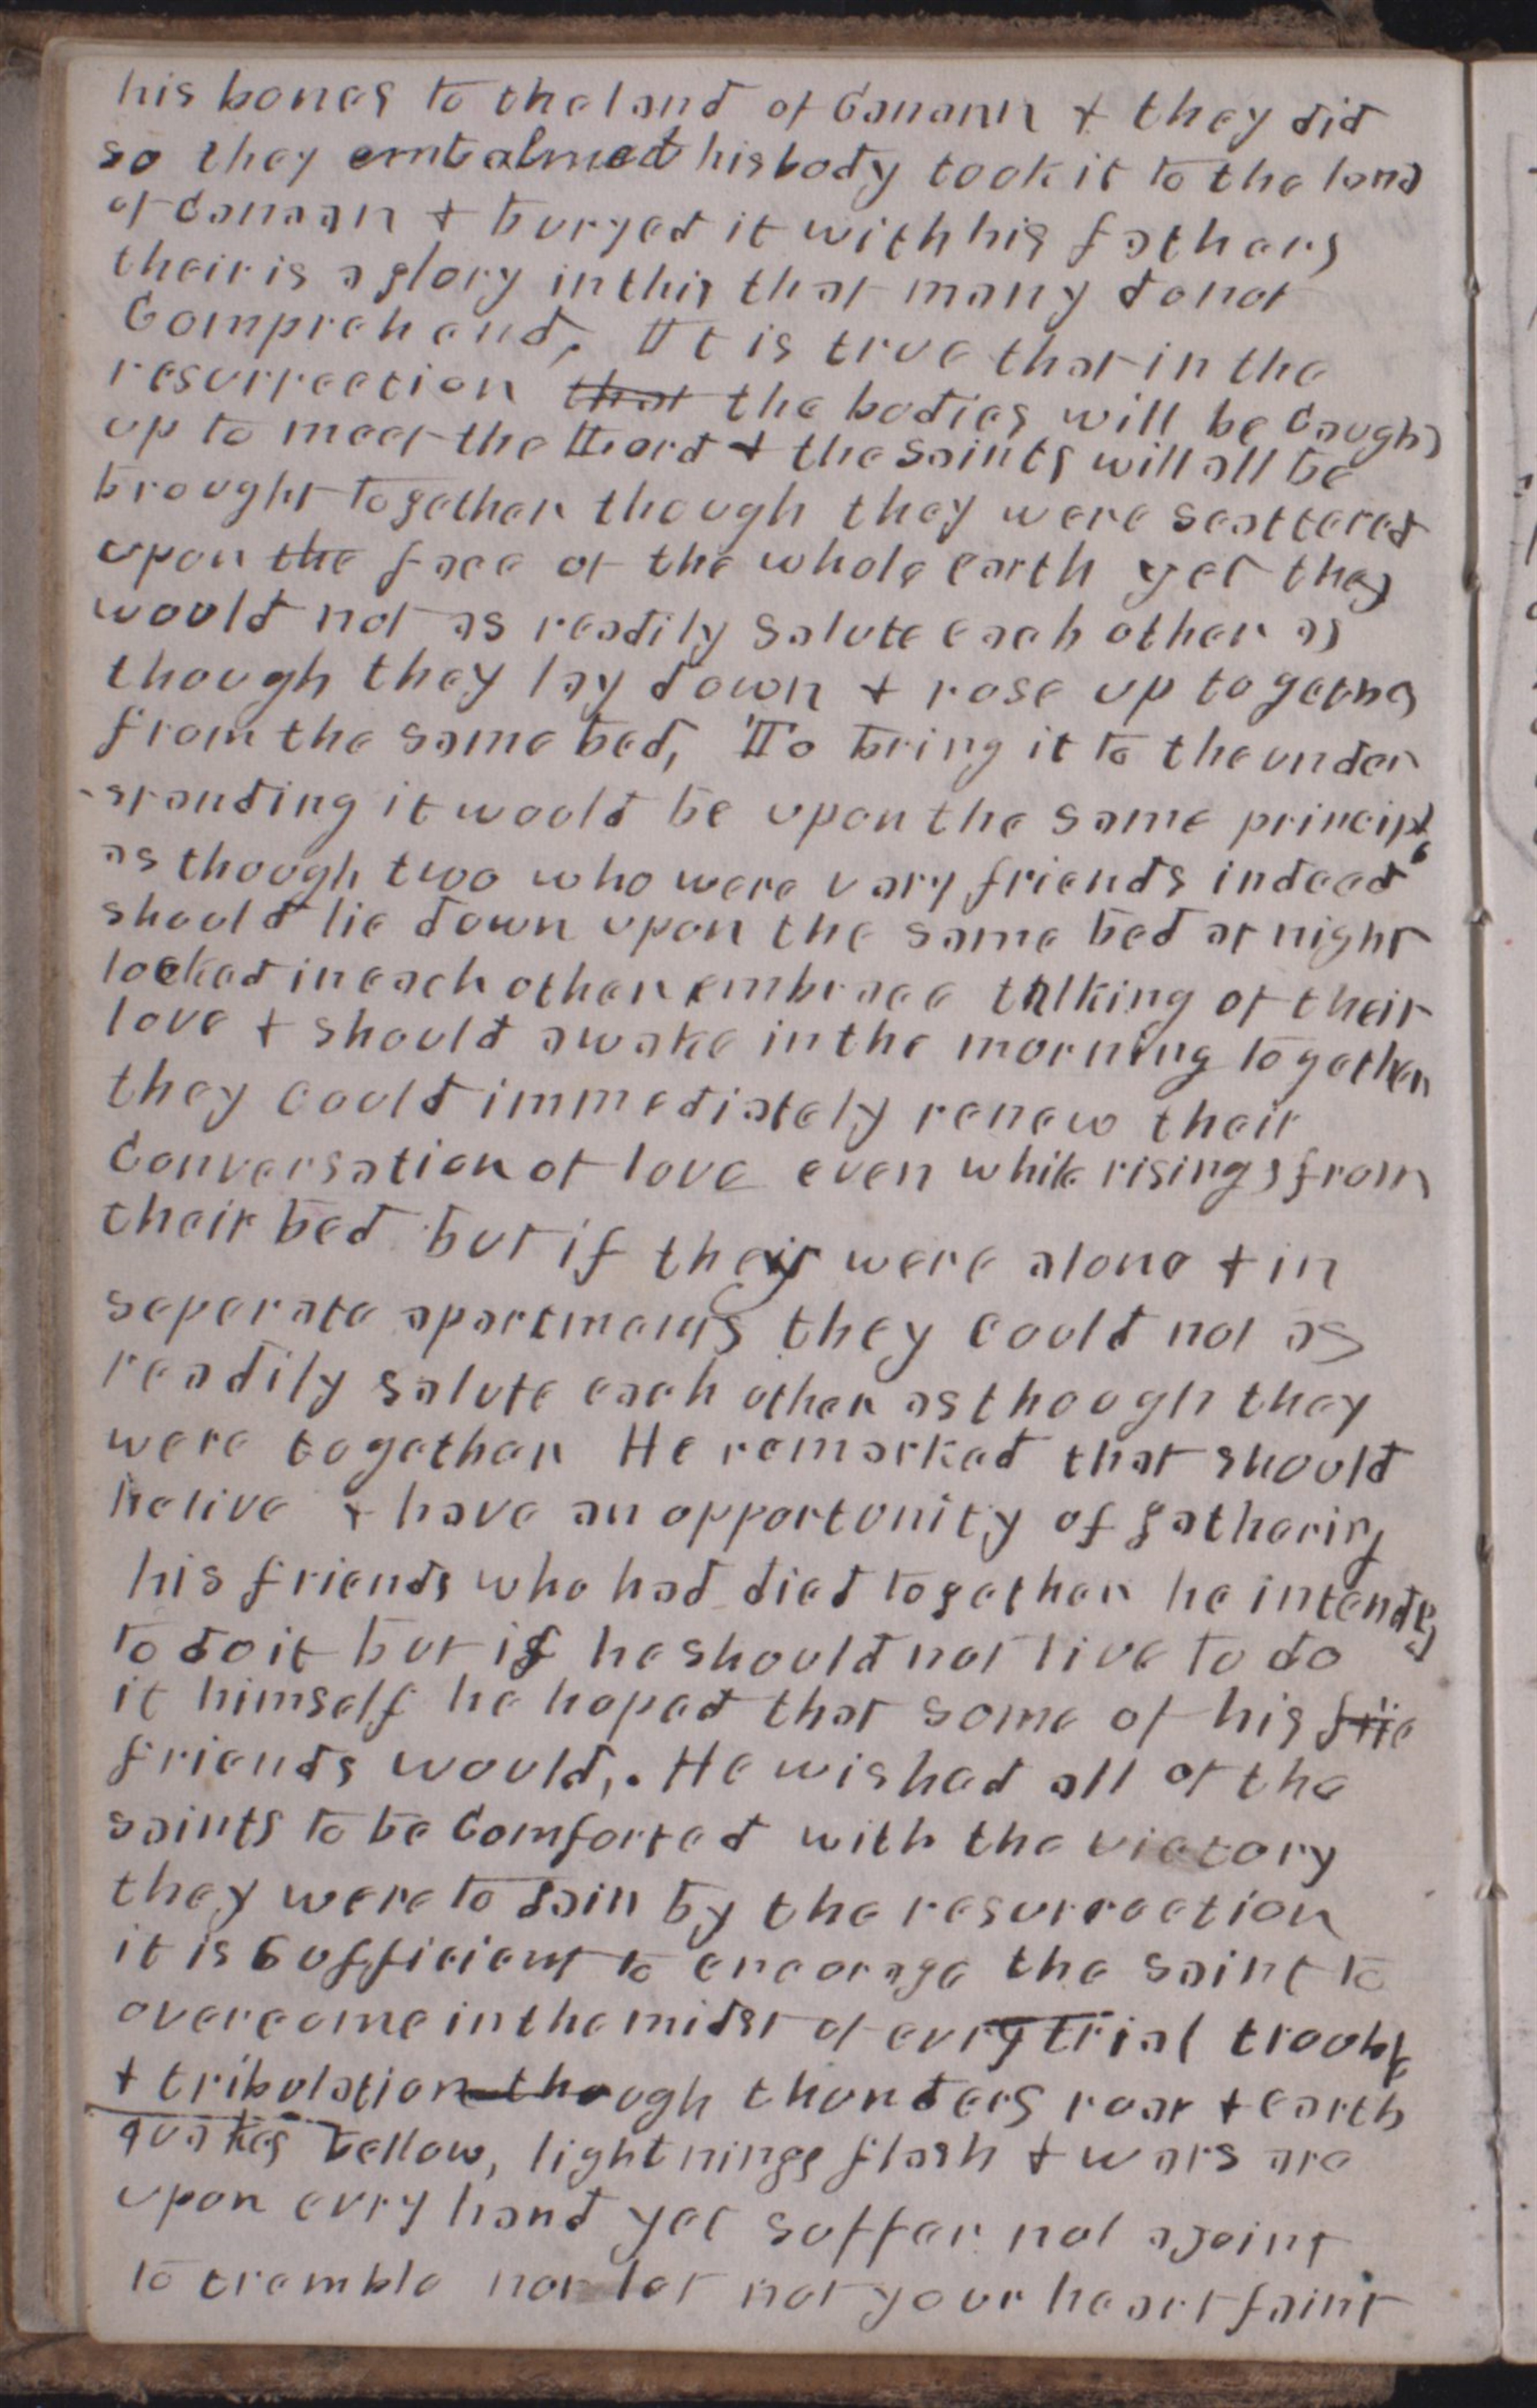 his bones to the land of Canann & they did
so they embalmed his body took it to the land
of Canaan & buryed it with his fathers
their is a glory in this that many do not
Comprehend, It is true that in the
resurrection that the bodies will be Caught
up to meet the Lord & the saints will all be
brought together though they were scattered
upon the face of the whole earth yet they
would not as readily salute each other as
though they lay down & rose up together
from the same bed, To bring it to the under
-standing it would be upon the same principle
as though two who were vary friends indeed
should lie down upon the same bed at night
locked in each other embrace talking of their
love & should awake in the morning together
they could immediately renew their
Conversation of love even while rising from
their bed but if they were alone & in
seperate apartments they could not as
readily salute each other as though they
were together He remarked that should
he live & have an opportunity of gathering
his friends who had died together he intendes
to do it but if he should not live to do
it himself he hoped that some of his frie
friends would,. He wished all of the
saints to be Comforted with the victory
they were to gain by the resurrection
it is sufficient to encorage the saint to
overcome in the midst of evry trial trouble
& tribulation though thunders roar & earth
quakes bellow, lightnings flash & wars are
upon evry hand yet suffer not a joint
to tremble nor let not your heart faint